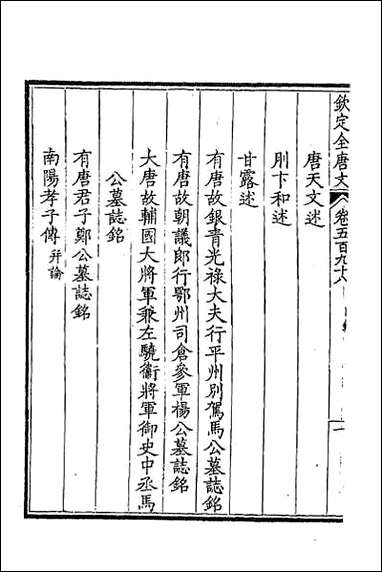 欽定全唐文 卷五百九十八 一
唐天文述
刖卞和述
甘露述
有唐故銀青光祿大夫行平州別駕馬公墓誌銘
有唐故朝議郎行鄂州司倉參軍楊公墓誌銘
大唐故輔國大將軍兼左驍衞將軍御史中丞馬
公墓誌銘
有唐君子鄭公墓誌銘
南陽孝子傳 并論